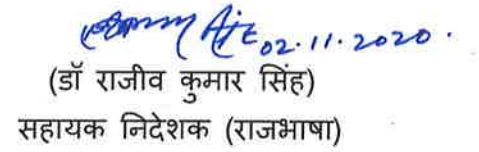 02.11.2020.
(डॉ राजीव कुमार सिंह)
सहायक निदेशक (राजभाषा)